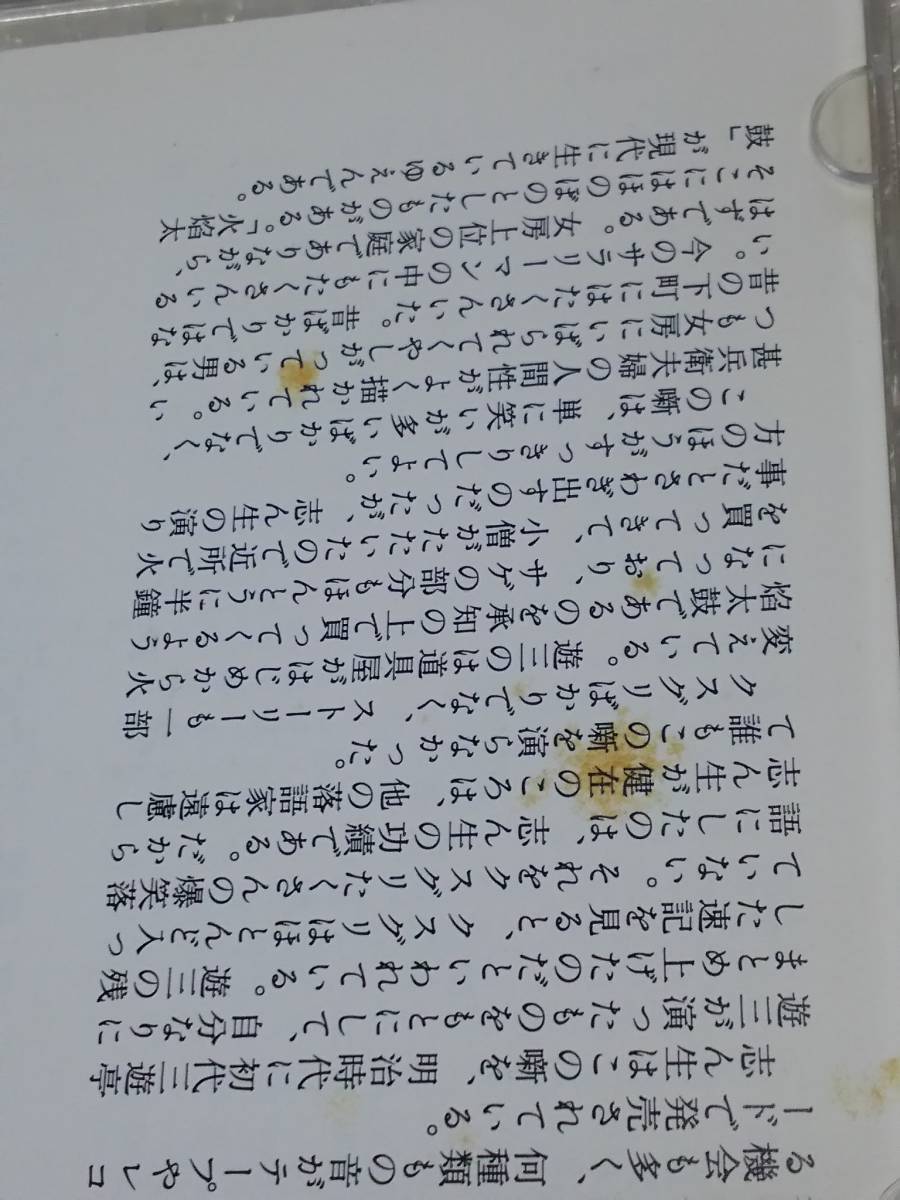 る機会も多く、何種類もの音がテープやレコ
ードで発売されている。
志ん生はこの噺を、明治時代に初代三遊亭
遊三が演ったものをもとにして、自分なりに
まとめ上げたのだといわれている。遊三の残
した速記を見ると、クスグリはほとんど入っ
ていない。それをクスグリたくさんの爆笑落
語にしたのは、志ん生の功績である。だから
志ん生が健在のころは、他の落語家は遠慮し
て誰もこの噺を演らなかった。
クスグリばかりでなく、ストーリーも一部
変えている。遊三のは道具屋がはじめから火
焔太鼓であるのを承知の上で買ってくるよう
になっており、サゲの部分もほんとうに半鐘
を買ってきて、小僧がたたいたので近所で火
事だとさわぎ出すのだったが、志ん生の演り
方のほうがすっきりしてよい。
この噺は、単に笑いが多いばかりでなく、
甚兵衛夫婦の人間性がよく描かれている。い
つも女房にいばられてくやしがっている男は、
昔の下町にはたくさんいた。昔ばかりではな
い。今のサラリーマンの中にもたくさんいる
はずである。女房上位の家庭でありながら、
そこにはほのぼのとしたものがある。「火焔太
鼓」が現代に生きているゆえんである。